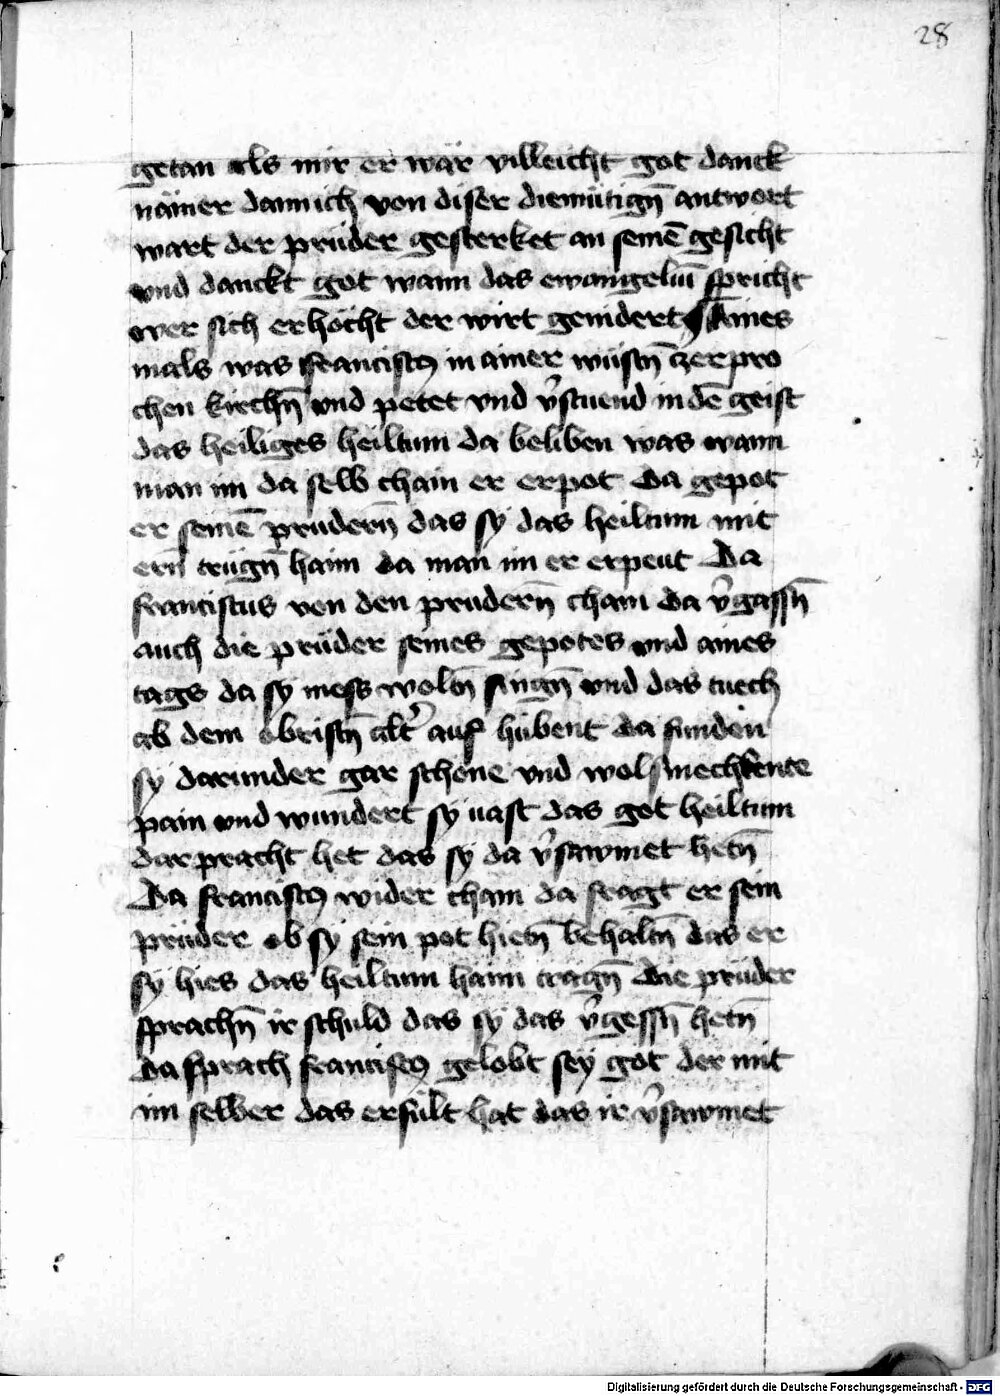 28
getan als mir er wär villeicht got danck
nämer dann ich von diser diemütign̄ antwort
wart der prüder gesterket an seinē gesicht
vnd danckt got wann das ewangeliū spricht
wer sich erhöcht der wirt gemdert Aines
mals was franciscꝰ in ainer wüstn̄ zerpro
chen kirchn̄ vnd petet vnd v̾stuend in dē geist
das heiliges heiltum da beliben was wann
man im da selb chain er erpot Da gepot
er seinē prudern̄ das sy das heiltum mit
ern̄ trügn̄ haim da man im er erpeut Da
franciscus von den prudern̄ cham da v̾gassn̄
auch die prüder seines gepotes vnd aines
tags da sy mess woln̄ singn̄ vnd das tuech
ab dem obristn̄ alt̾ auf hübent da funden
sy darunder gar schöne vnd wolsmechkente
pain vnd wundert sy uast das got heiltum
dar pracht het das sy da v̾sawmet hetn̄
Da franciscꝰ wider cham da fragt er sein
prüder ob sy sein pot hietn̄ behaltn̄ das er
sy hies das heiltum haim tragn̄ Die prüder
sprachn̄ ir schuld das sy das v̾gessn̄ hetn̄
da sprach franciscꝰ gelobt sey got der mit
im selber das erfült hat das ir v̾sawmet
Digitalisierung gefördert durch die Deutsche Forschungsgemeinschaft - DFG